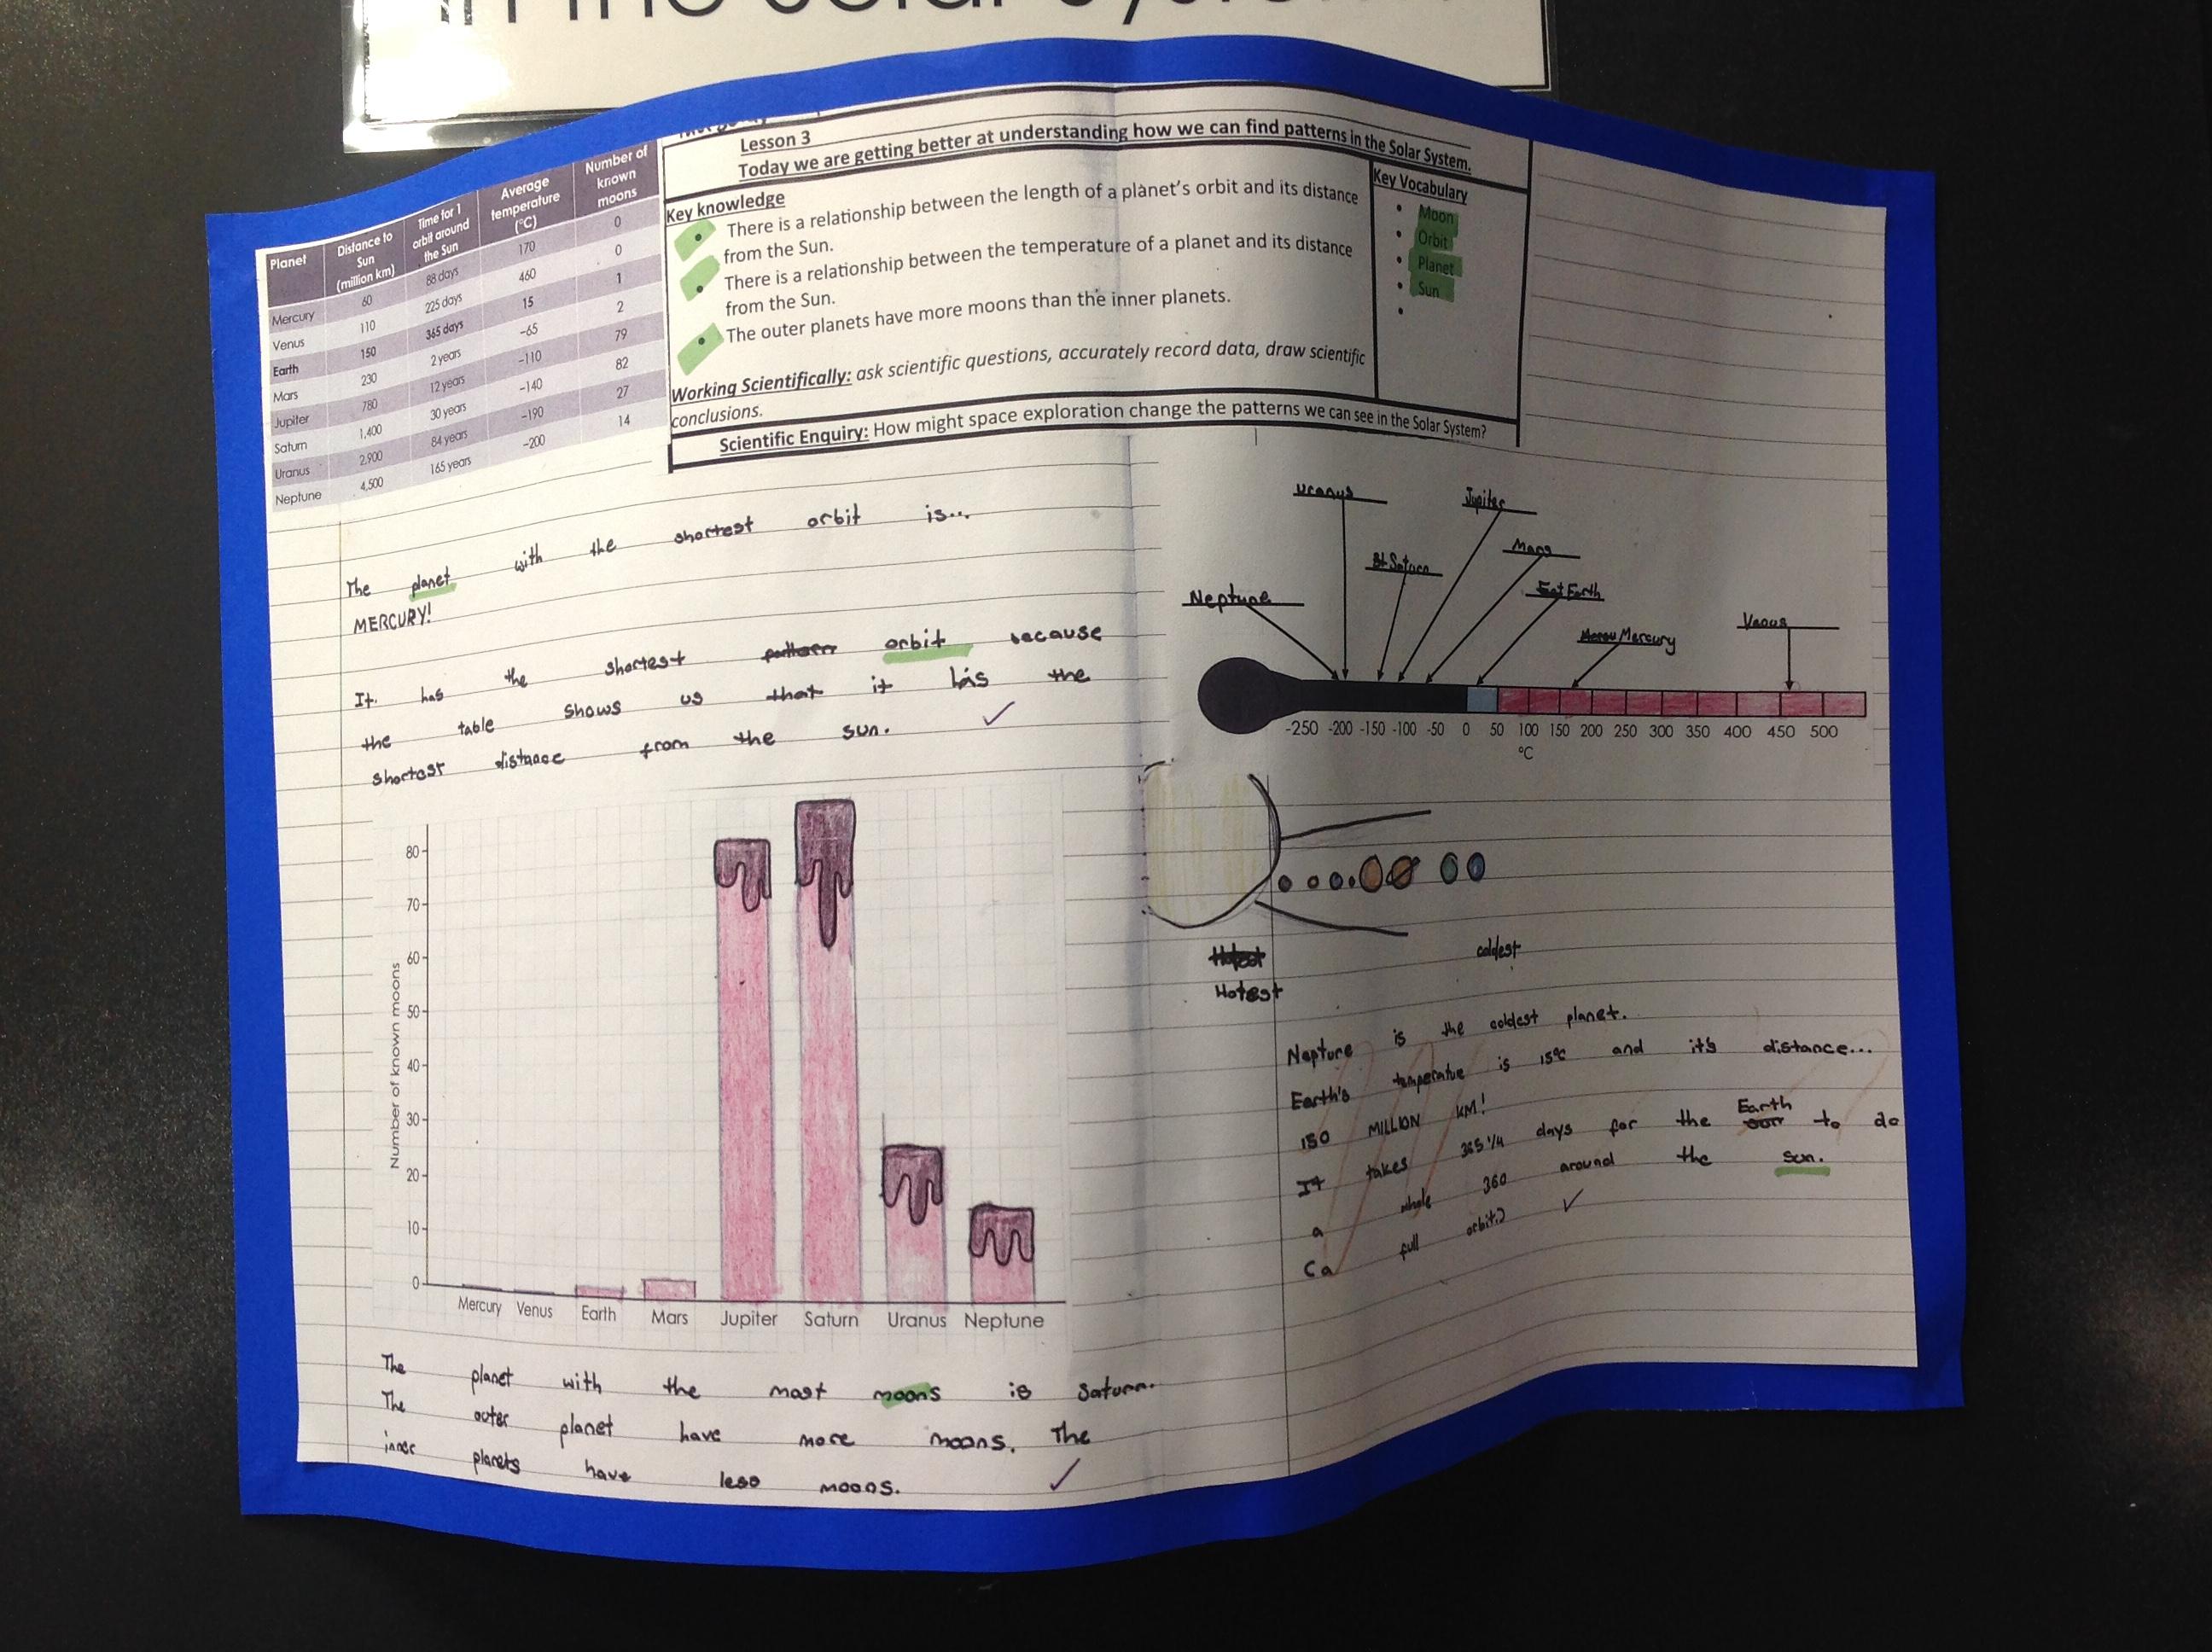 in the Solar System
Planet | Distance to Sun (million km) | Time for 1 orbit around the Sun | Average temperature (°C) | Number of known moons
Mercury | 60 | 88 days | 170 | 0
Venus | 110 | 225 days | 460 | 0
Earth | 150 | 365 days | 15 | 1
Mars | 230 | 2 years | -65 | 2
Jupiter | 780 | 12 years | -110 | 79
Saturn | 1,400 | 30 years | -140 | 82
Uranus | 2,900 | 84 years | -190 | 27
Neptune | 4,500 | 165 years | -200 | 14
Lesson 3
Today we are getting better at understanding how we can find patterns in the Solar System.
Key knowledge
• There is a relationship between the length of a planet's orbit and its distance
from the Sun.
• There is a relationship between the temperature of a planet and its distance
from the Sun.
• The outer planets have more moons than the inner planets.
Working Scientifically: ask scientific questions, accurately record data, draw scientific
conclusions.
Key Vocabulary
• Moon
• Orbit
• Planet
• Sun
•
Scientific Enquiry: How might space exploration change the patterns we can see in the Solar System?
The planet with the shortest orbit is...
MERCURY!
It has the shortest pattern orbit because
the table shows us that it has the
shortest distance from the sun.
Number of known moons
80
70
60
50
40
30
20
10
0
Mercury Venus Earth Mars Jupiter Saturn Uranus Neptune
The planet with the most moons is Saturn.
The outer planet have more moons. The
inner planets have less moons.
Uranus
Jupiter
Saturn
Mars
Neptune
Earth
Mercury
Venus
-250 -200 -150 -100 -50 0 50 100 150 200 250 300 350 400 450 500
°C
coldest
Hotest
Hotest
Neptune is the coldest planet.
Earth's temperatue is 15°C and it's distance...
150 MILLION KM!
It takes 365 1/4 days for the sun Earth to do
a whole 360 around the sun.
(a full orbit.)